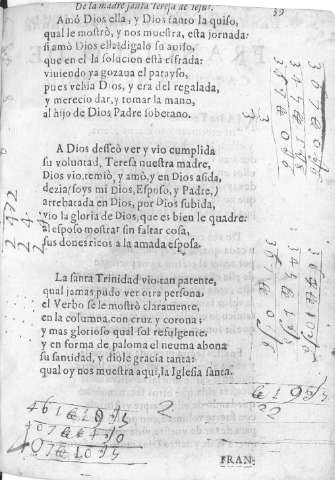 De la madre santa Teresa de Iesus.
39
Amó Dios ella, y Dios tanto la quiso,
qual le mostrò, y nos muestra, esta jornada:
si amò Dios ella:digalo su auiso,
que en el la solucion està cifrada:
viuiendo ya gozaua el parayso,
pues vehia Dios, y era del regalada,
y merecio dar, y tomar la mano,
al hijo de Dios Padre soberano.
A Dios desseò ver y vio cumplida
su voluntad, Teresa nuestra madre,
Dios vio, temiò, y amò, y en Dios asida,
dezia, soys mi Dios, Esposo, y Padre,
arrebatada en Dios, por Dios subida,
vio la gloria de Dios, que es bien le quadre:
al esposo mostrar sin faltar cosa,
sus dones ricos a la amada esposa.
La santa Trinidad vio tan patente,
qual jamas pudo ver otra persona,
el Verbo se le mostrò claramente,
en la columna con cruz y corona:
y mas glorioso qual sol refulgente,
y en forma de paloma el neuma abona
su santidad, y diole gracia tanta:
qual oy nos muestra aqui, la Iglesia santa.
2
FRAN-